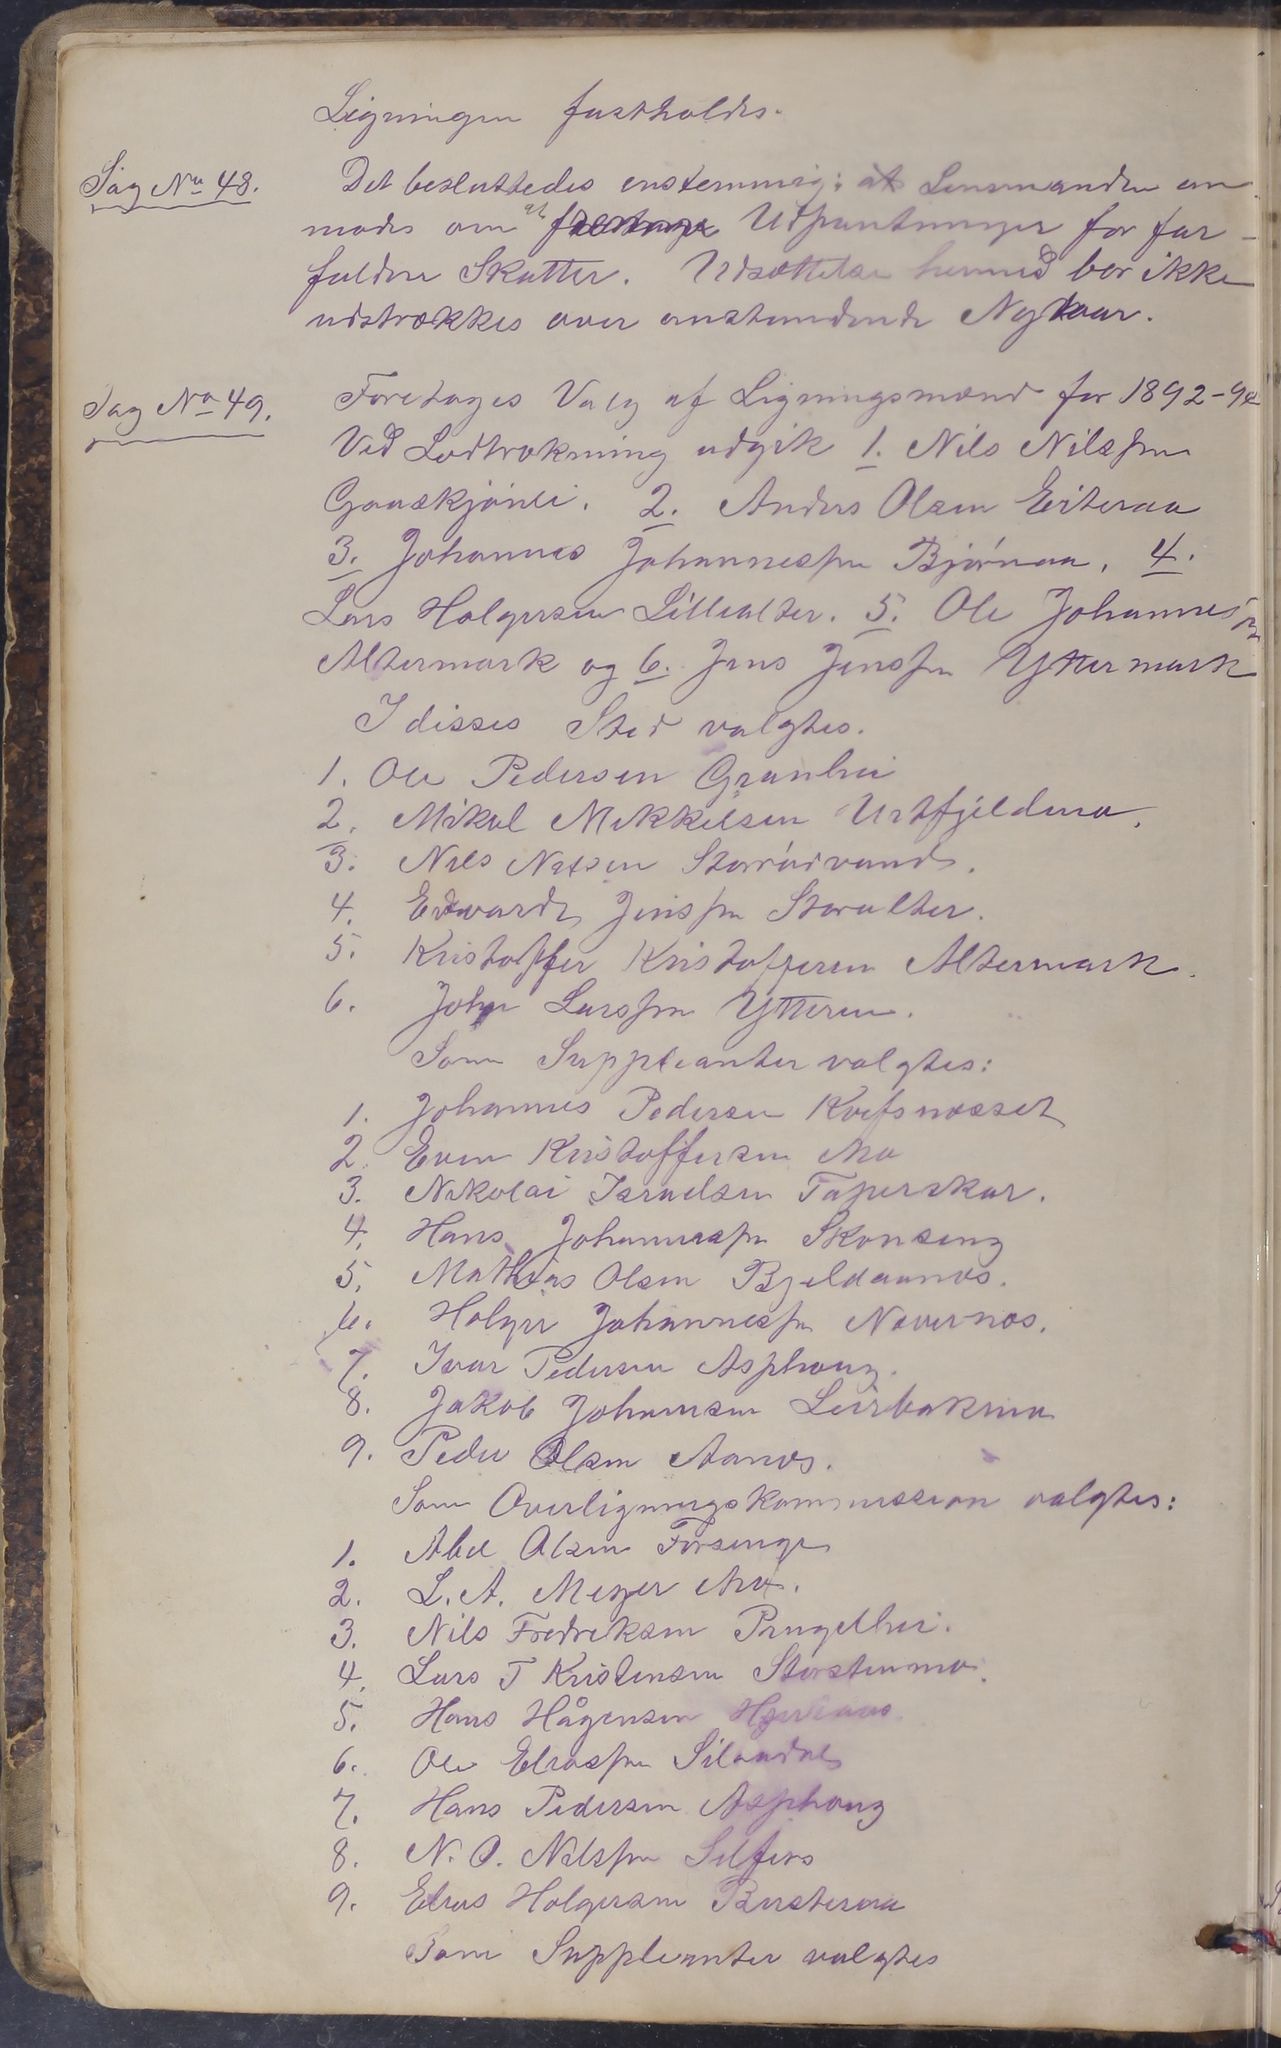 Ligningen fastholdes.
Sag No 48.
Det besluttedes enstemmig: at Lensmanden an
modes om at foretage Udpantninger for for-
faldne Skatter. Udsættelse hermed bør ikke
udstrækkes over anstundende Nytaar.
Sag No 49.
Foretoges Valg af Ligningsmænd for 1892-94
Ved Lodtrækning udgik 1. Nils Nilssen
2. Anders Olsen Eiteraa
3. Johannes Johannessen Bjørnaa, 4.
Lars Holgersen Lillealter. 5. Ole Johannessen
Altermark og 6. Jens Jenssen Yttermark
I disses Sted valgtes.
1. Ole Pedersen Granhei
2. Mikal Mikkelsen Urtfjeldmo.
3. Nils Nilsen Storrøvand.
4. Edvard Jenssen Storalter.
5. Kristoffer Kristoffersen Altermark.
6. John Larssen Ytteren.
Som Suppleanter valgtes:
1. Johannes Pedersen Kvefsnæsset
2. Even Kristoffersen Mo
3. Nikolai Israelsen Taperskar.
4. Hans Johannessen Skonseng
5. Mathias Olsen Bjeldaanæs.
6. Holger Johannessen Nævernæs.
7. Ivar Pedersen Asphaug.
8. Jakob Johansen Leirbakmo
9. Peder Olsen Aanæs.
Som Overligningskommission valgtes:
1. Abel Olsen Forsenge
2. L. A. Meyer Mo.
3. Nils Fredriksen Pingelhei.
4. Lars T Kristensen Storstenmo.
5. Hans Hågensen
6. Ole Eliassen
7. Hans Pedersen Asphaug
8. N. O. Nilssen Selfors
9. Elias Holgersen
Som Suppleanter valgtes